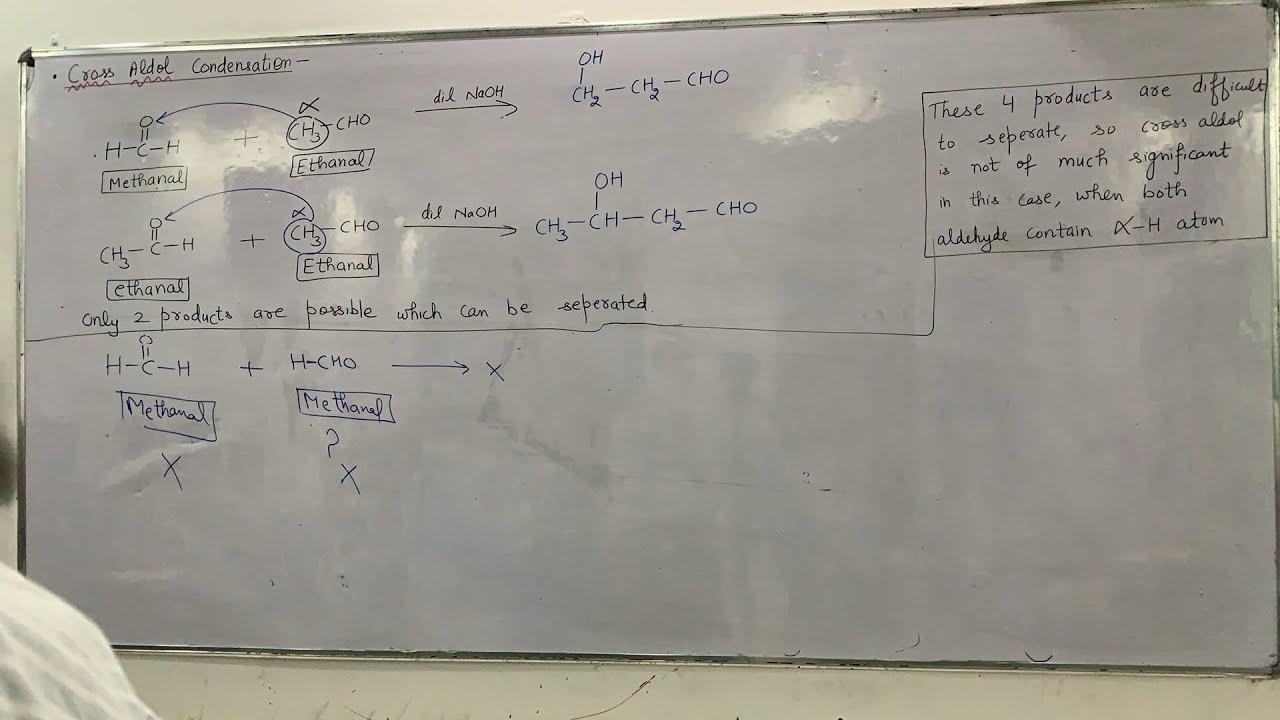 • Cross Aldol Condensation –
O
H–C–H
+
α
CH3–CHO
dil NaOH
OH
CH2–CH2–CHO
Methanal
Ethanal
O
CH3–C–H
+
α
CH3–CHO
dil NaOH
OH
CH3–CH–CH2–CHO
ethanal
Ethanal
Only 2 products are possible which can be seperated.
O
H–C–H + H–CHO ⟶ X
Methanal
Methanal
?
X X
These 4 products are difficult
to seperate, so cross aldol
is not of much significant
in this case, when both
aldehyde contain α–H atom